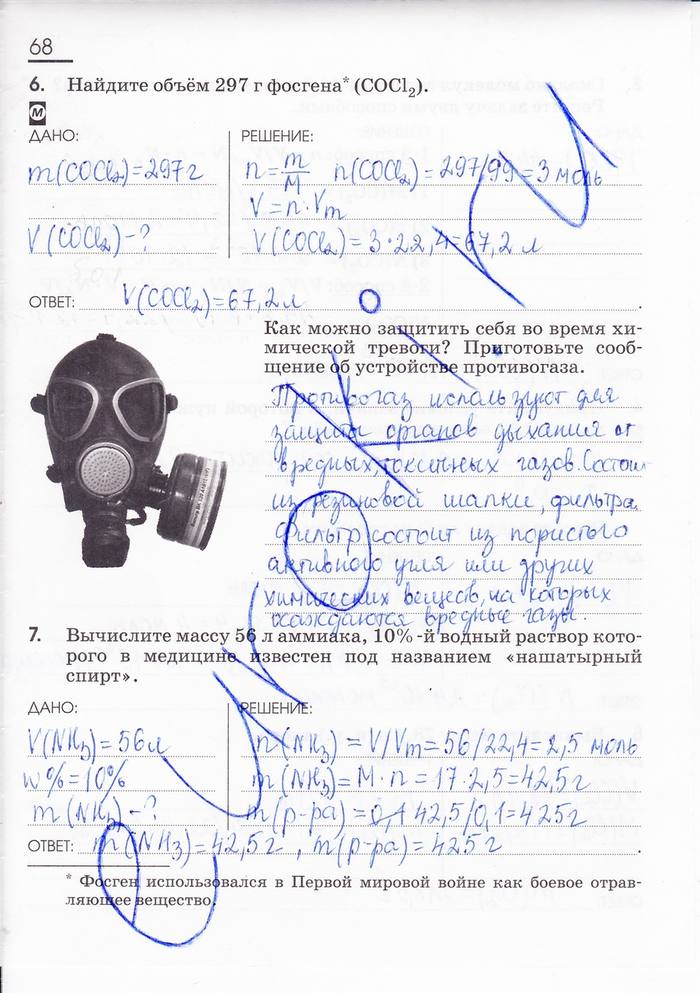 68
6. Найдите объём 297 г фосгена* (COCl₂).
М
ДАНО: РЕШЕНИЕ:
m(COCl₂)=297г n=m/M n(COCl₂)=297/99=3 моль
V=n·Vm
V(COCl₂)-? V(COCl₂)=3·22,4=67,2 л
ОТВЕТ: V(COCl₂)=67,2л.
Как можно защитить себя во время хи-
мической тревоги? Приготовьте сооб-
щение об устройстве противогаза.
Противогаз используют для
защиты органов дыхания от
вредных, токсичных газов. Состоит
из резиновой шапки, фильтра.
Фильтр состоит из пористого
активного угля или других
химических веществ, на которых
осаждаются вредные газы.
7. Вычислите массу 56 л аммиака, 10%-й водный раствор кото-
рого в медицине известен под названием «нашатырный
спирт».
ДАНО: РЕШЕНИЕ:
V(NH₃)=56л n(NH₃)=V/Vm=56/22,4=2,5 моль
w%=10% m(NH₃)=M·n=17·2,5=42,5г
m(NH₃)-? m(р-ра)=0,1 42,5/0,1=425г
ОТВЕТ: m(NH₃)=42,5г, m(р-ра)=425г.
* Фосген использовался в Первой мировой войне как боевое отрав-
ляющее вещество.